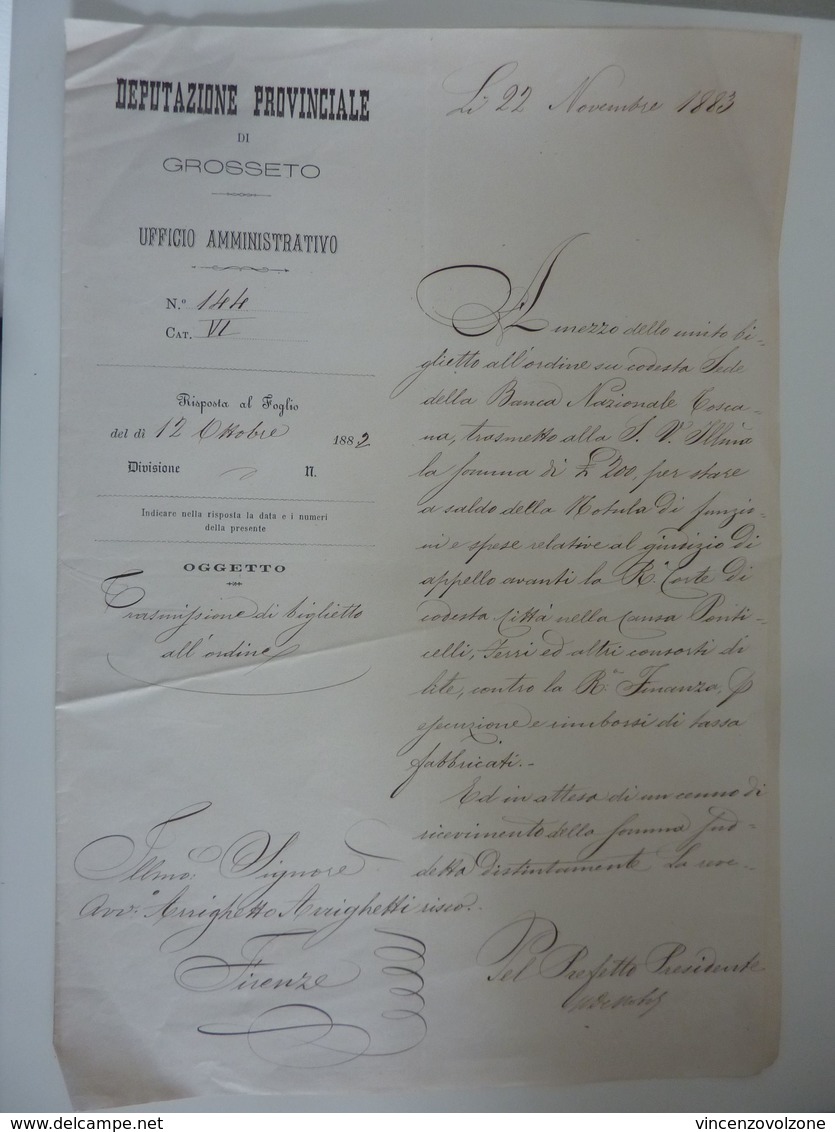 DEPUTAZIONE PROVINCIALE
DI
GROSSETO
UFFICIO AMMINISTRATIVO
N.º 144
CAT. VI
Risposta al Foglio
del dì 12 Ottobre 1882
Divisione N.
Indicare nella risposta la data e i numeri
della presente
OGGETTO
Trasmissione di biglietto
all'ordine
Lì 22 Novembre 1883
A mezzo dello unito bi-
glietto all'ordine su codesta Sede
della Banca Nazionale Tosca-
na, trasmetto alla S. V. Illma
la somma di £ 200, per stare
a saldo della Notula di funzio-
ni e spese relative al giudizio di
appello avanti la R. Corte di
codesta Città nella causa Ponti-
celli, Ferri ed altri consorti di
lite, contro la R. Finanza, p
esenzione e rimborsi di tassa
fabbricati.-
Ed in attesa di un cenno di
ricevimento della somma sud-
detta distintamente La rive-
Illmo: Signore
Avv: Arrighetto Arrighetti risco.
Firenze
Pel Prefetto Presidente
delcampe.net
vincenzovolzone